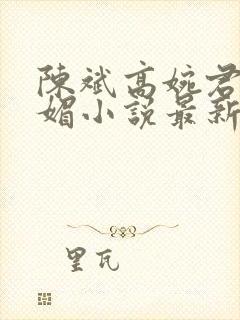 陳斌高婉君
媚小説最新
里瓦